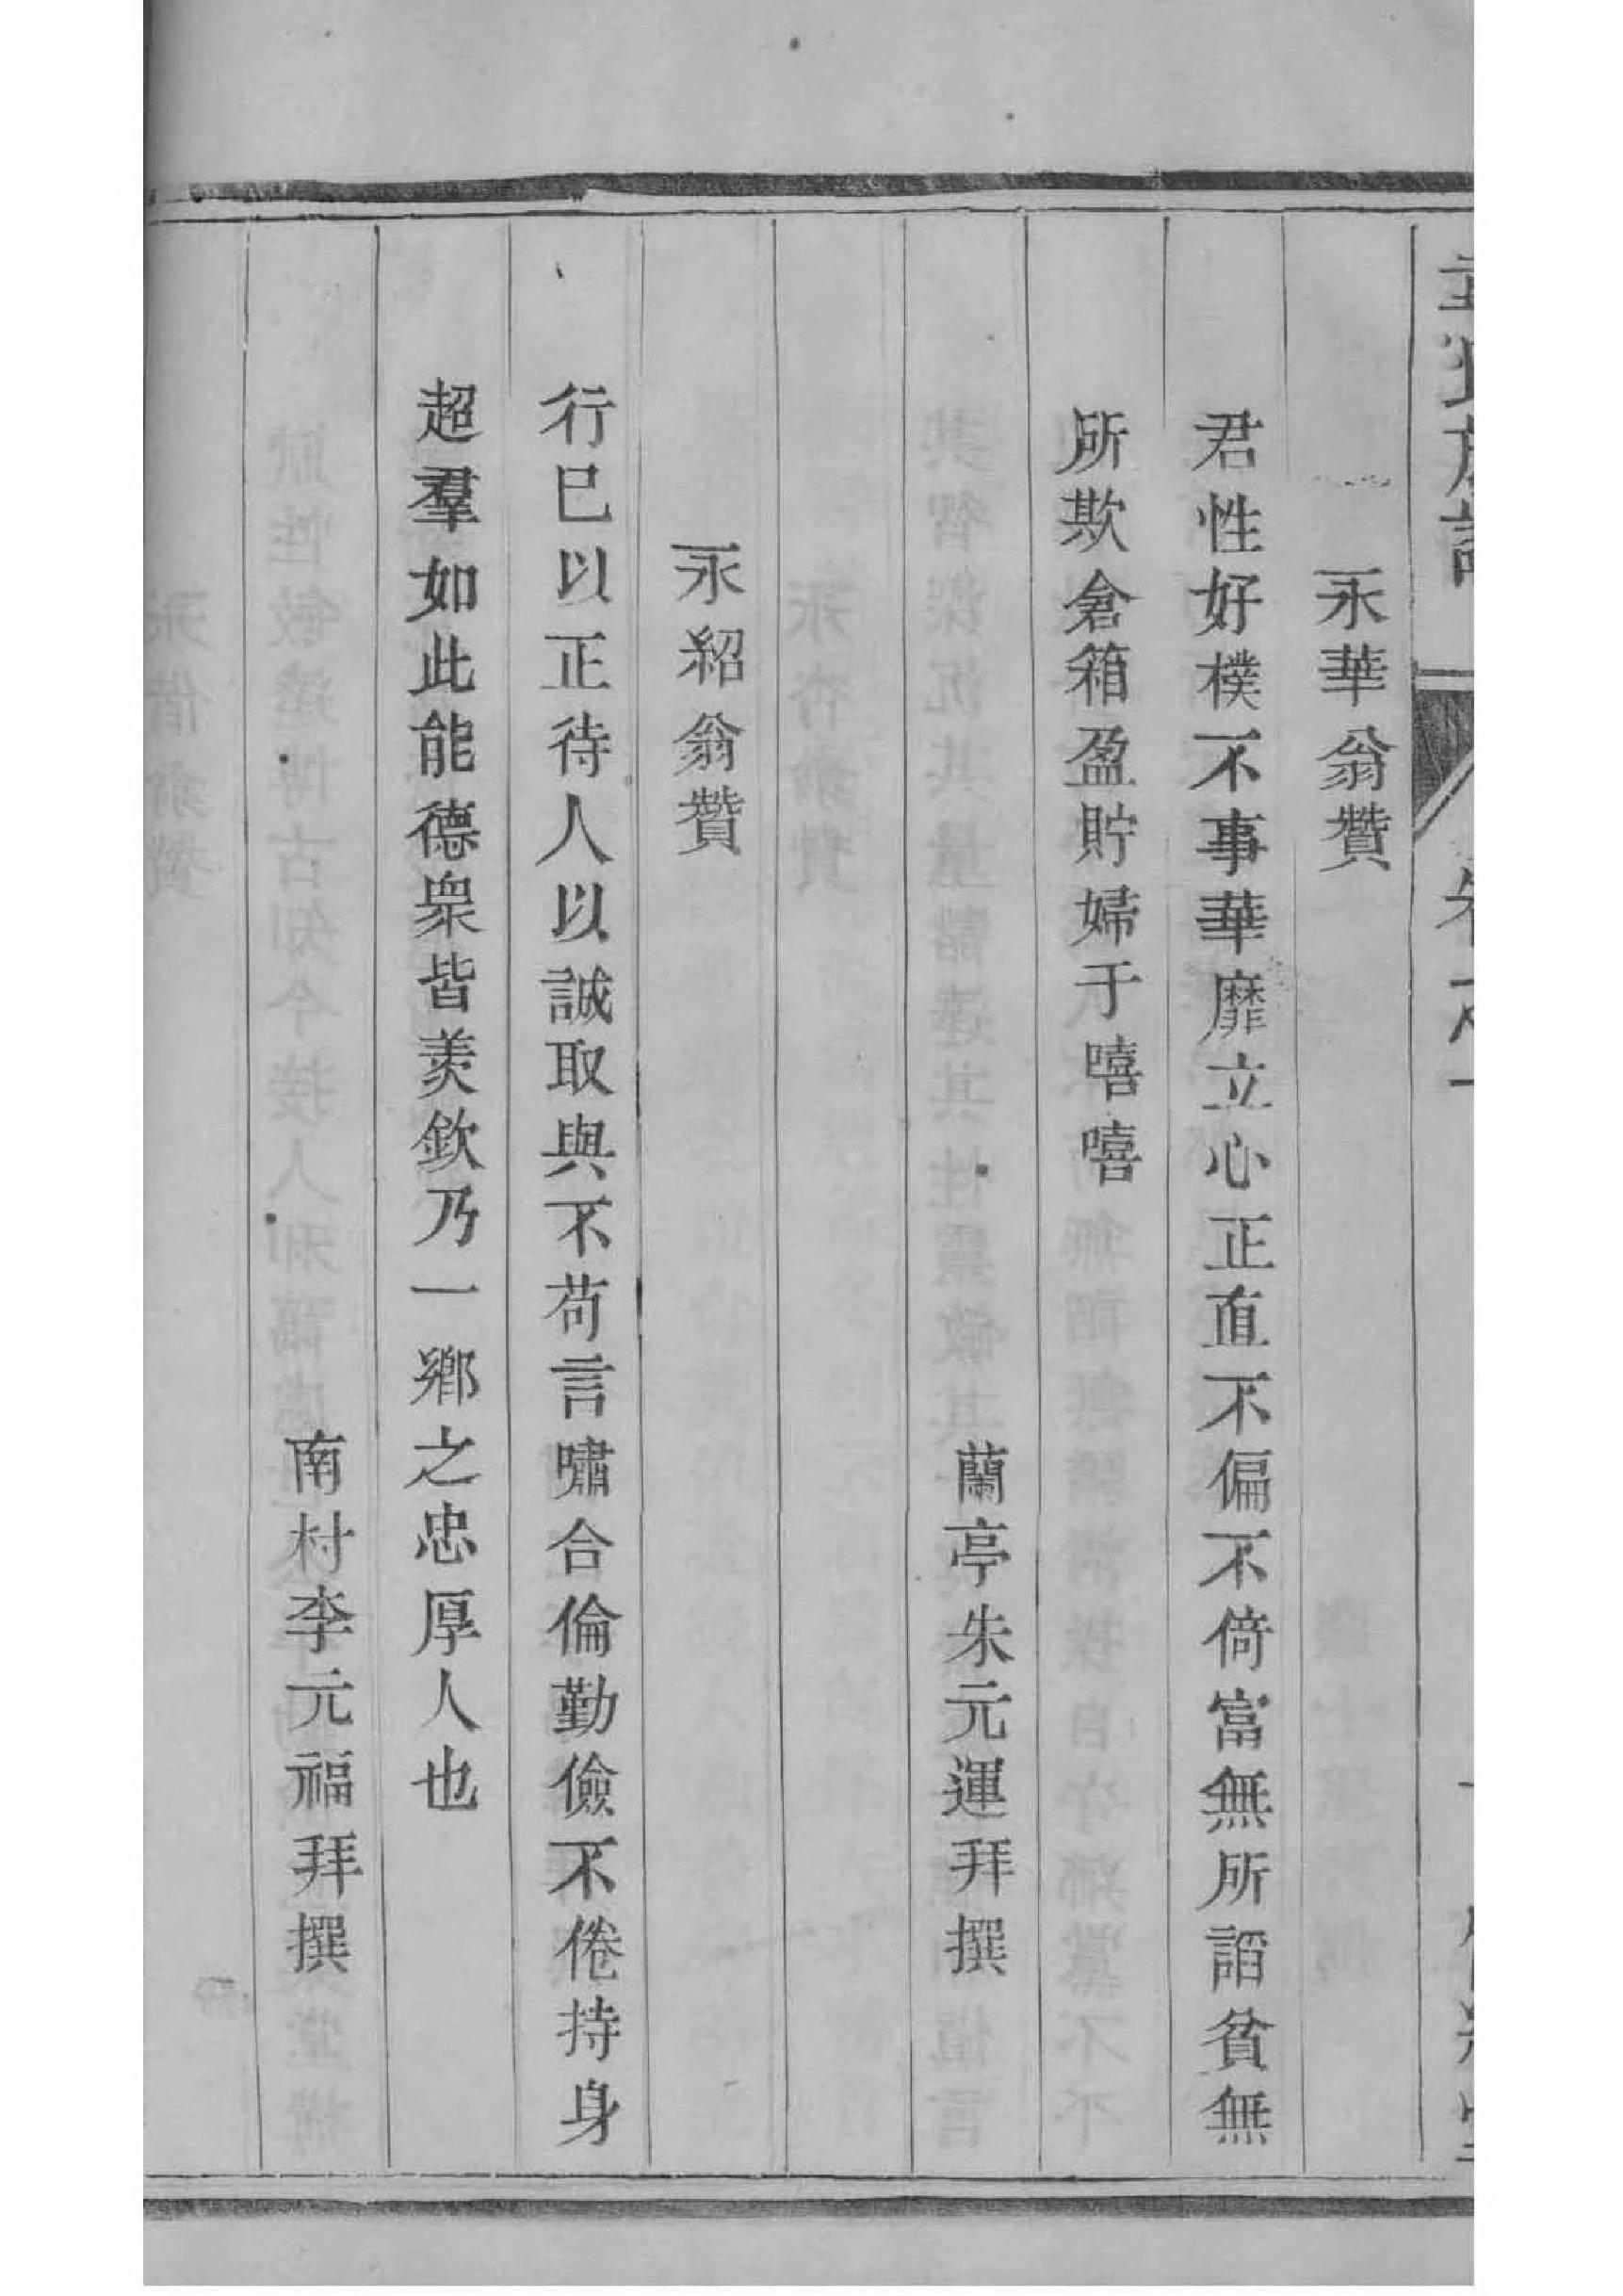 永華翁贊
君性好樸不事華靡立心正直不偏不倚富無所謟貧無
所欺倉箱盈貯婦于嘻嘻
蘭亭朱元運拜撰
永紹翁贊
行巳以正待人以誠取與不苟言嘯合倫勤儉不倦持身
超羣如此能德衆皆羨欽乃一鄉之忠厚人也
南村李元福拜撰